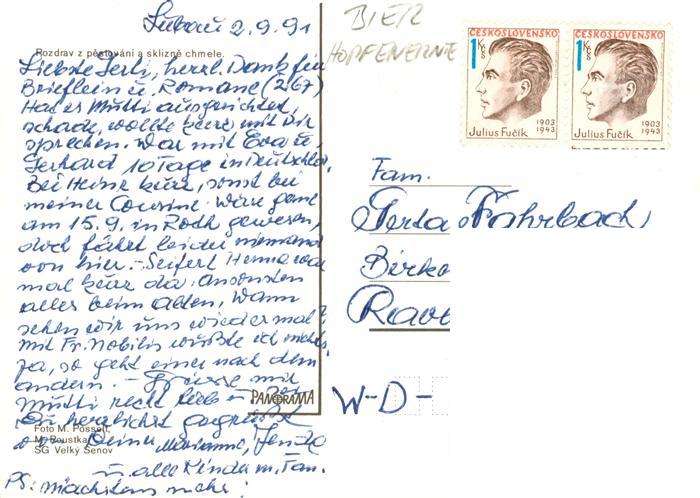 Lubau 2.9.91
Rozdrav z pěstování a sklizně chmele.
Liebste Gerti, herzl. Dank für
Brieflein u. Romane (267)
Hat es Mutti ausgerichtet,
schade, wollte kurz mit Dir
sprechen. War mit Eva u.
Gerhard 10 Tage in Deutschl.
Bei Heinz kurz, sonst bei
meiner Cousine. Wäre gerne
am 15.9. in Roth gewesen,
doch fährt leider niemand
von hier. - Seifert Herma war
mal kurz da. Ansonsten
alles beim alten, wann
sehen wir uns wieder mal?
mit Fr. Nobilis wußte ich nichts,
ja, so geht einer nach dem
andern. - Grüsse mir
Mutti recht lieb
Du herzlichst gegrüsst
Deine Marianne, Jenda
u. alle Kinder m. Fam.
PS: nächstens mehr!
PANORAMA
Foto M. Posselt,
M. Boustka
SG Velký Šenov
BIER
HOPFENERNTE
ČESKOSLOVENSKO
1 Kčs
1903
1943
Julius Fučík
ČESKOSLOVENSKO
1 Kčs
1903
1943
Julius Fučík
Fam.
Gerta Fahrbach
Birko
Rave
W-D-